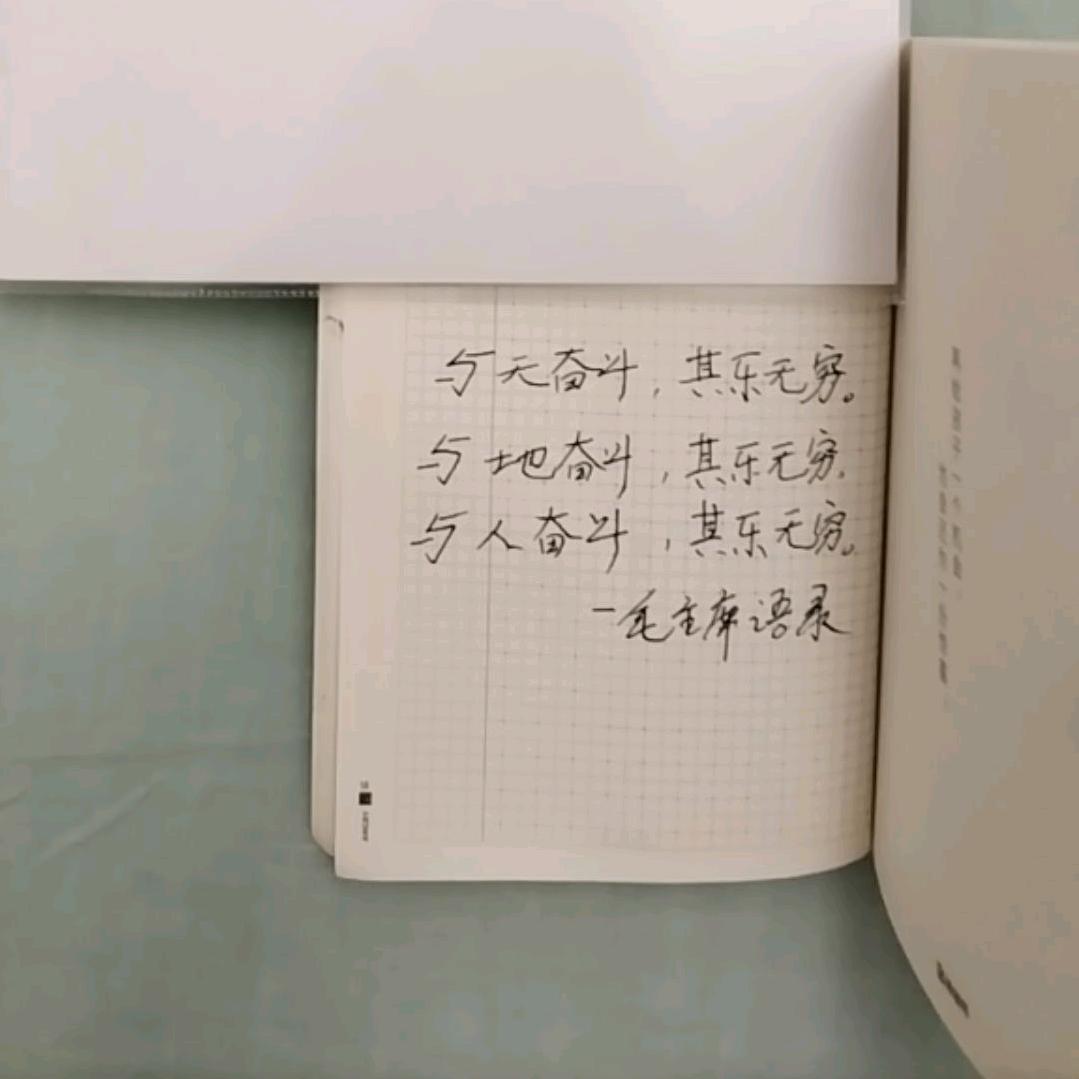 与天奋斗,其乐无穷。
与地奋斗,其乐无穷.
与人奋斗,其乐无穷。
-毛主席语录